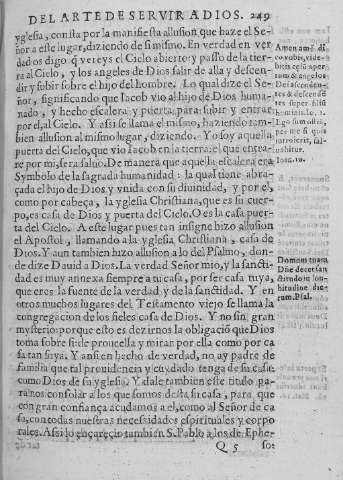 DEL ARTE DE SERVIR A DIOS. 249
yglesia, consta por la manifiesta allusion que haze el Se-
ñor a este lugar, diziendo de si mismo. En verdad en ver
dad os digo q̃ vereys el Cielo abierto: y passo de la tier-
ra al Cielo, y los angeles de Dios salir de alla y descen-
dir y subir sobre el hijo del hombre. Lo qual dize el Se-
ñor, significando que Iacob vio al hijo de Dios huma-
nado, y hecho escalera, y puerta, para subir y entrar
por el, al Cielo. Y assi se llama el mismo, haziendo tam-
bien allusion al mismo lugar, diziendo. Yo soy aquella
puerta del Cielo, que vio Iacob en la tierra: el que entra-
re por mi, sera saluo. De manera que aquella escalera era
Symbolo de la sagrada humanidad: la qual tiene abra-
çada el hijo de Dios, y vnida con su diuinidad, y por el,
como por cabeça, la yglesia Christiana, que es su cuer-
po, es casa de Dios y puerta del Cielo. O es la casa puer-
ta del Cielo. A este lugar pues tan insigne hizo allusion
el Apostol, llamando a la yglesia Christiana, casa de
Dios. Y aun tambien hizo allusion a lo del Psalmo, don-
de dize Dauid a Dios. La verdad Señor mio, y la sancti-
dad es muy annexa siempre a tu casa, por ser casa tuya,
que eres la fuente de la verdad y de la sanctidad. Y en
otros muchos lugares del Testamento viejo se llama la
congregacion de los fieles casa de Dios. Y no sin gran
mysterio: porque esto es dezirnos la obligació que Dios
toma sobre si de proucella y mirar por ella como por ca
sa tan suya. Y ansi en hecho de verdad, no ay padre de
familia que tal prouidencia y cuydado tenga de su casa:
como Dios de su yglesia. Y dale tambien este titulo pa-
ra nos consolar a los que somos desta su casa, para que
con gran confiança acudamos a el, como al Señor de ca
sa, con todas nuestras necessidades espirituales y corpo
rales. Assi lo encareçio tambien S. Pablo a los de Ephe-
Q 5 so:
Amen amé di-
co vobis, vide-
bitis cęlũ aper
tum & angelos
Dei ascenden-
tes & descendē
tes super filiũ
hominis. Io. 1.
Ego sum ostiũ,
per me si quis
introierit, sal-
uabitur.
Ioan. 10.
Domum tuam
Dñe decet san
ctitudo in lon-
gitudine die-
rum. Psal.